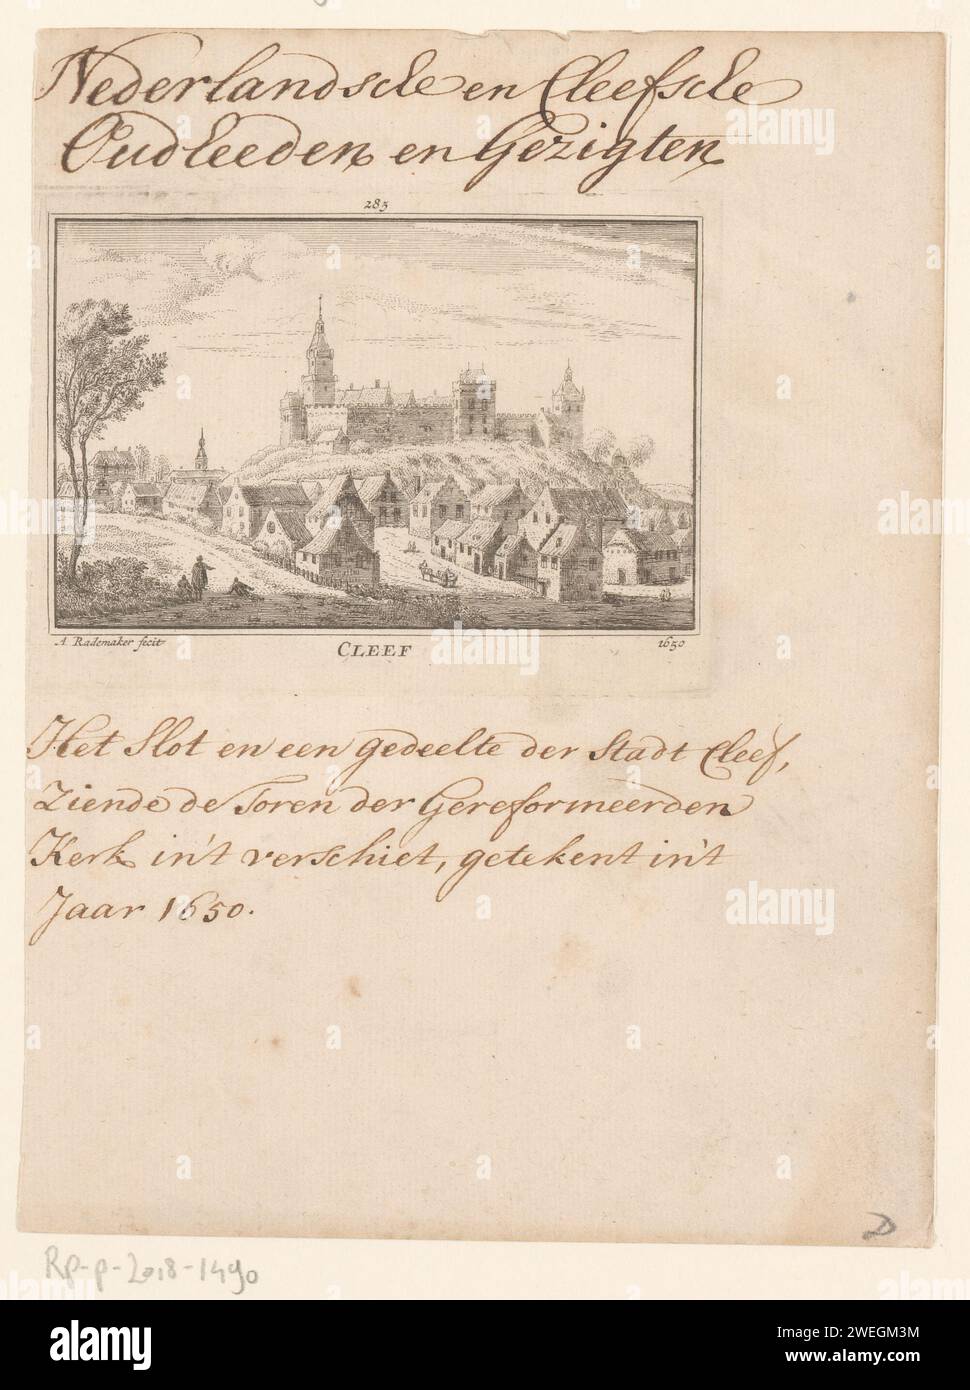 Nederlandsche en Cleefsche
Oudheeden en Gezigten
285
A. Rademaker fecit
CLEEF
1650
Het Slot en een gedeelte der Stadt Cleef,
Ziende de Toren der Gereformeerden
Kerk in't verschiet, getekent in't
Jaar 1650.
D
RP-P-2018-1490
alamy
Image ID: 2WEGM3M
www.alamy.com